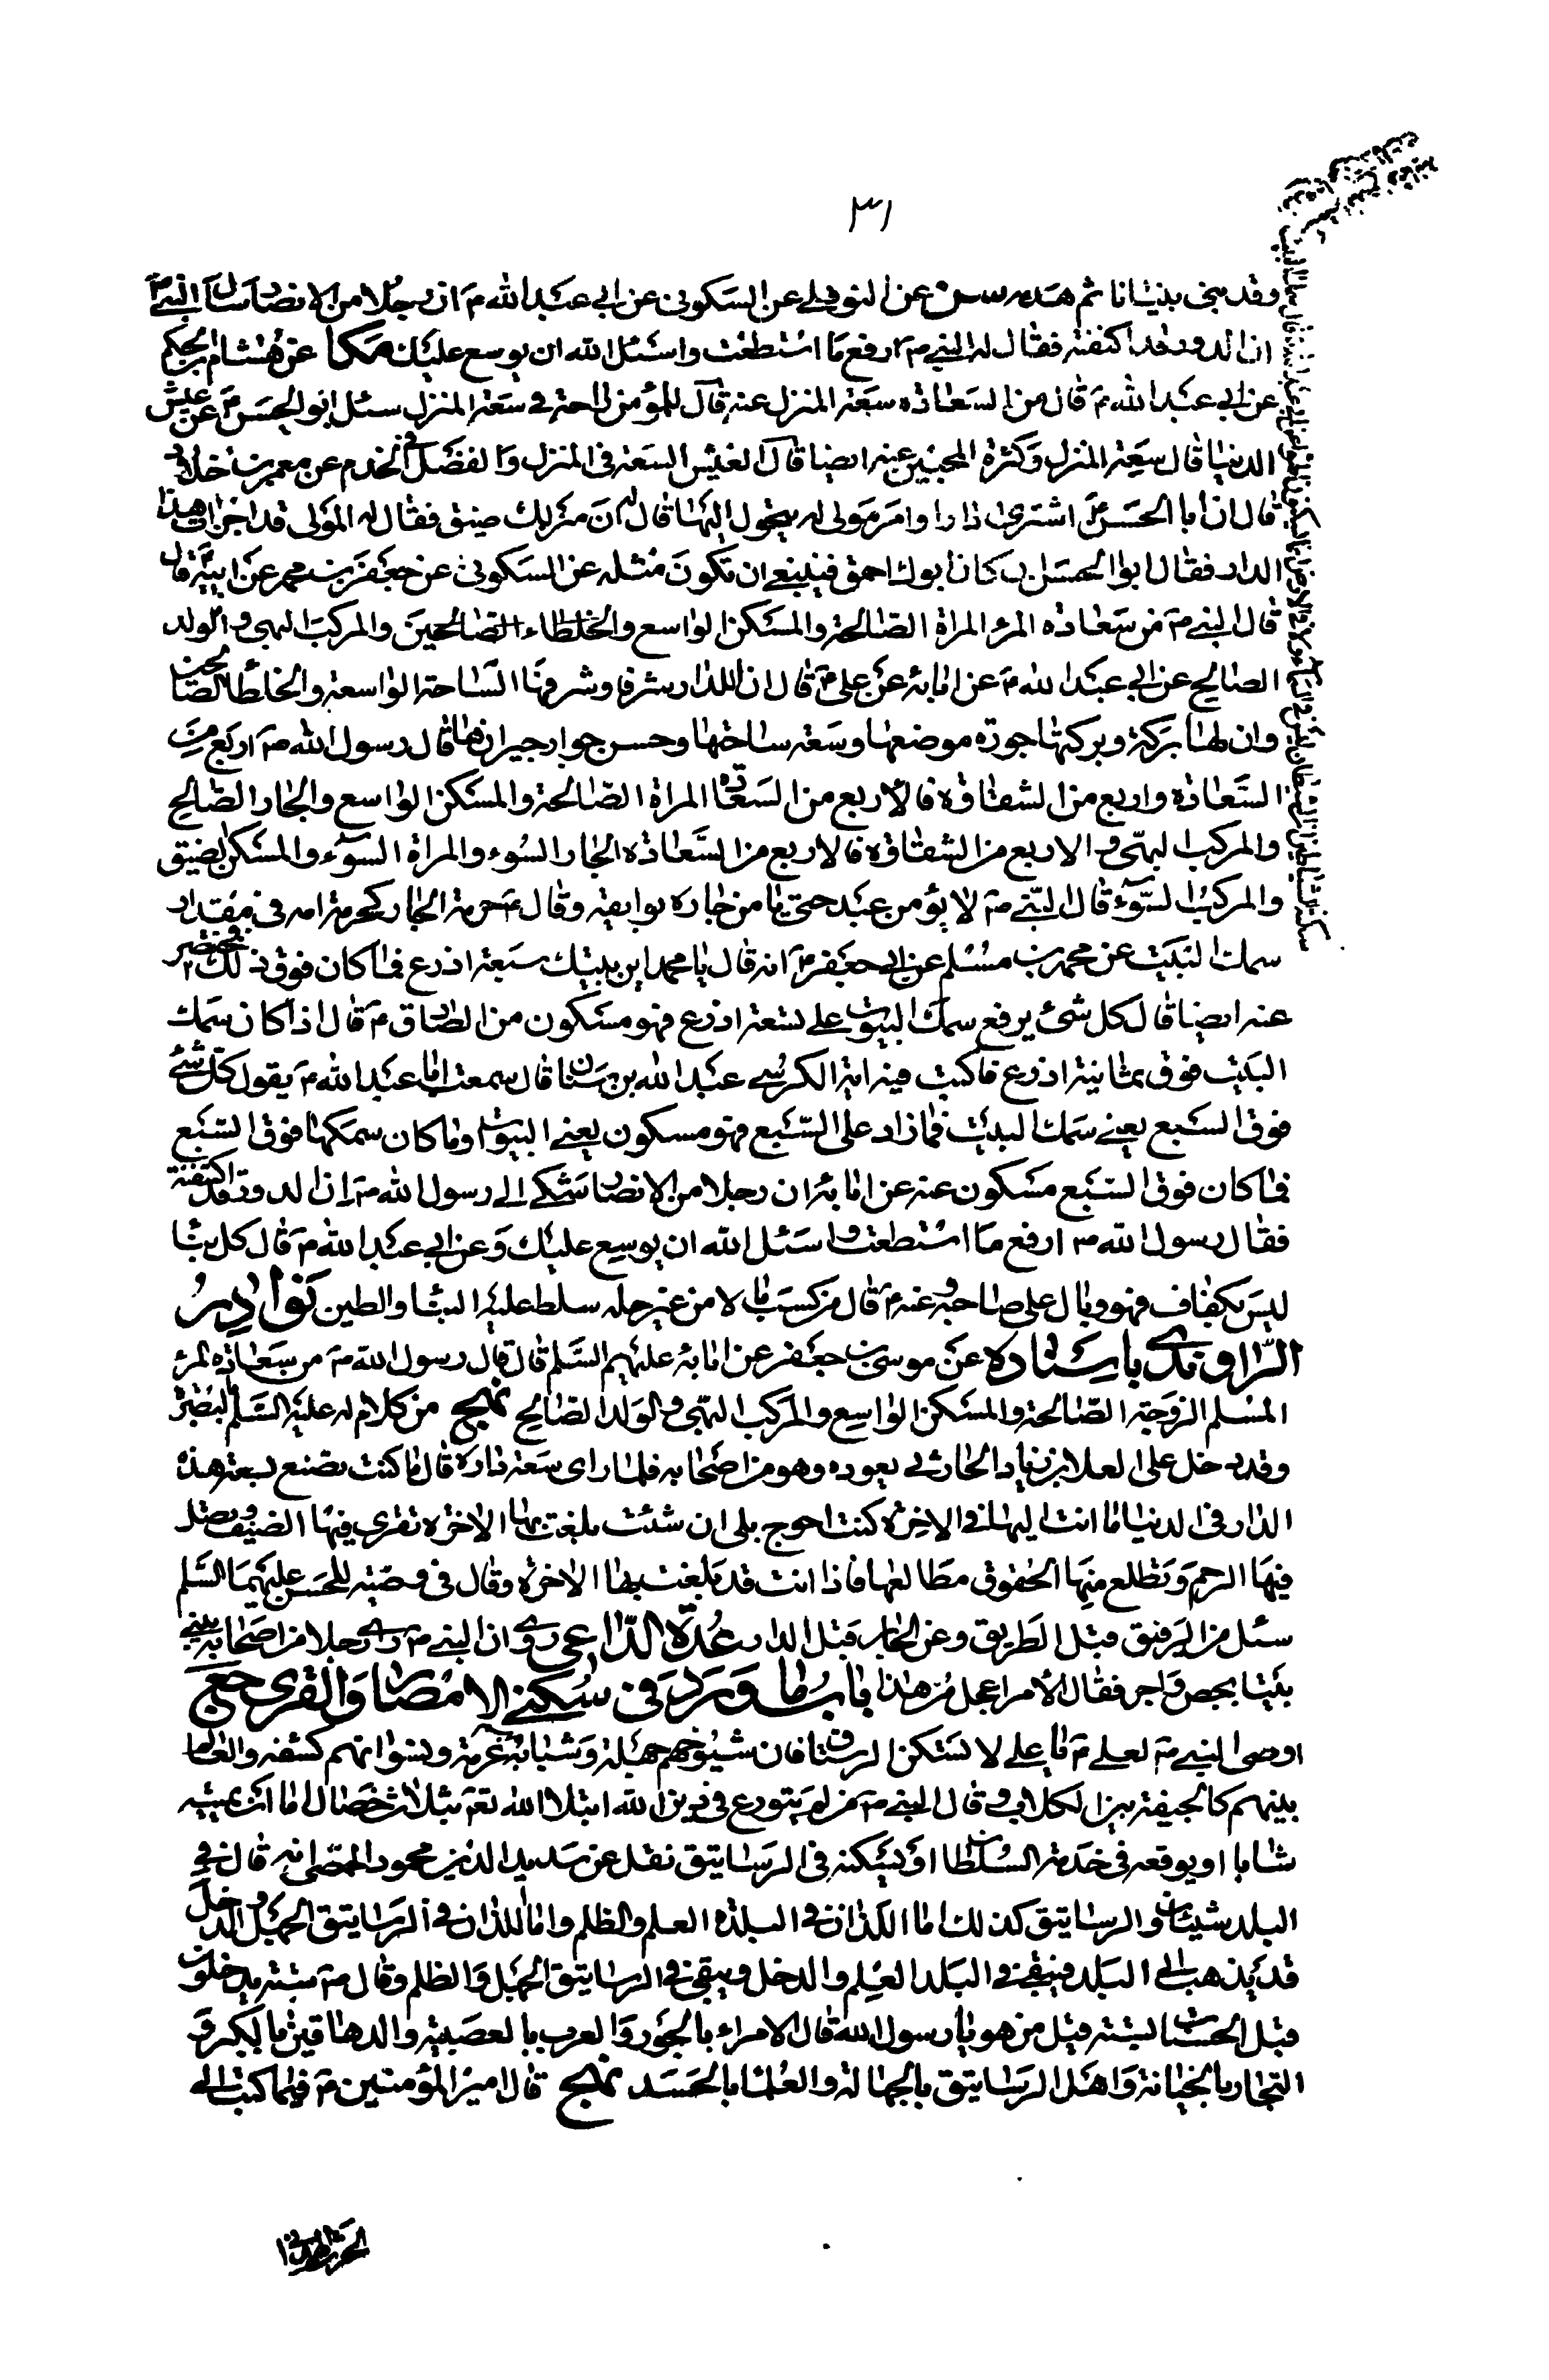 ٣١
وقد بنى بنيانا ثم هدمه سن عن النوفلي عن السكوني عن ابي عبد الله ع ان رجلا من الانصار سال النبي ص
ان الدور قد اكتنفته فقال له النبي ص ارفع ما استطعت واسئل الله ان يوسع عليك مكا عن هشام بن الحكم
عن ابي عبد الله ع قال من السعادة سعة المنزل عنه قال للمؤمن راحة في سعة المنزل سئل ابو الحسن ع عن عيش
الدنيا قال سعة المنزل وكثرة المحبين عنه ايضا قال العيش السعة في المنزل والفضل في الخدم عن معمر بن خلاد
قال ان ابا الحسن ع اشترى دارا وامر مولى له يتحول اليها قال ان منزلك ضيق فقال له المولى قد اجزأت هذه
الدار فقال ابو الحسن ان كان ابوك احمق فينبغي ان تكون مثله عن السكوني عن جعفر بن محمد عن ابيه قال
قال النبي ص من سعادة المرء المراة الصالحة والمسكن الواسع والخلطاء الصالحين والمركب البهي والولد
الصالح عن ابي عبد الله ع عن ابائه عن علي ع قال ان للدار شرفا وشرفها الساحة الواسعة والخلطاء الصالحين
وان لها بركة وبركتها جودة موضعها وسعة ساحتها وحسن جوار جيرانها قال رسول الله ص اربع من
السعادة واربع من الشقاوة فالاربع من السعادة المراة الصالحة والمسكن الواسع والجار الصالح
والمركب البهي والاربع من الشقاوة فالاربع من السعادة الجار السوء والمراة السوء والمسكن الضيق
والمركب السوء قال النبي ص لا يؤمن عبد حتى يامن جاره بوايقه وقال ع حرمة الجار كحرمة امه في مقدار
سمك البيت عن محمد بن مسلم عن ابي جعفر ع انه قال يا محمد ابن بيتك سبعة اذرع فما كان فوق ذلك محتضر
عنه ايضا قال كل شئ يرفع سمك البيوت على تسعة اذرع فهو مسكون من الصادق ع قال اذا كان سمك
البيت فوق ثمانية اذرع فاكتب فيه اية الكرسي عبد الله بن سنان قال سمعت ابا عبد الله ع يقول كل شئ
فوق السبع يعني سمك البيت فما زاد على السبع فهو مسكون يعني البيوت وما كان سمكها فوق السبع
فما كان فوق السبع مسكون عنه عن ابائه ان رجلا من الانصار شكى الى رسول الله ص ان الدور قد اكتنفته
فقال رسول الله ص ارفع ما استطعت واسئل الله ان يوسع عليك وعن ابي عبد الله ع قال كل بناء
ليس بكفاف فهو وبال على صاحبه وعنه ع قال من كسب مالا من غير حله سلط عليه البناء والطين نوادر
الراوندي باسناده عن موسى بن جعفر عن ابائه عليهم السلم قال قال رسول الله ص من سعادة المرء
المسلم الزوجة الصالحة والمسكن الواسع والمركب البهي والولد الصالح نهج من كلام له عليه السلم بالبصرة
وقد دخل على العلا بن زياد الحارثي يعوده وهو من اصحابه فلما راى سعة داره قال ما كنت تصنع بسعة هذه
الدار في الدنيا اما انت اليها في الاخرة كنت احوج بلى ان شئت بلغت بها الاخرة تقري فيها الضيف وتصل
فيها الرحم وتطلع منها الحقوق مطالعها فاذا انت قد بلغت بها الاخرة وقال في وصيته للحسن عليهما السلم
سئل من الرفيق قبل الطريق وعن الجار قبل الدار عدة الداعي روي ان النبي ص راى رجلا من اصحابه يبني
بيتا بجص واجر فقال الامر اعجل من هذا باب ما ورد في سكنى الامصار والقرى جع
اوصى النبي ص لعلي ع يا علي لا تسكن الرستاق فان شيوخهم جهلة وشبابهم عرمة ونسوانهم كشفة والعالم
بينهم كالجيفة بين الكلاب وقال النبي ص من لم يتورع في دين الله ابتلاه الله تعم بثلاث خصال اما ان يميته
شابا او يوقعه في خدمة السلطان او يسكنه في الرساتيق نقل عن سديد الدين محمود الحمصي انه قال في
البلد شيئان والرساتيق كذلك اما اللذان في البلدة العلم والظلم واما اللذان في الرساتيق الجهل والدخل
قد يذهب الى البلد فيبقى في البلد العلم والدخل ويبقى في الرساتيق الجهل والظلم وقال ص ستة يدخلون
قبل الحساب لستة قيل من هو يا رسول الله قال الامراء بالجور والعرب بالعصبية والدهاقين بالكبر و
التجار بالخيانة واهل الرساتيق بالجهالة والعلما بالحسد نهج قال امير المؤمنين ع فيما كتب الى